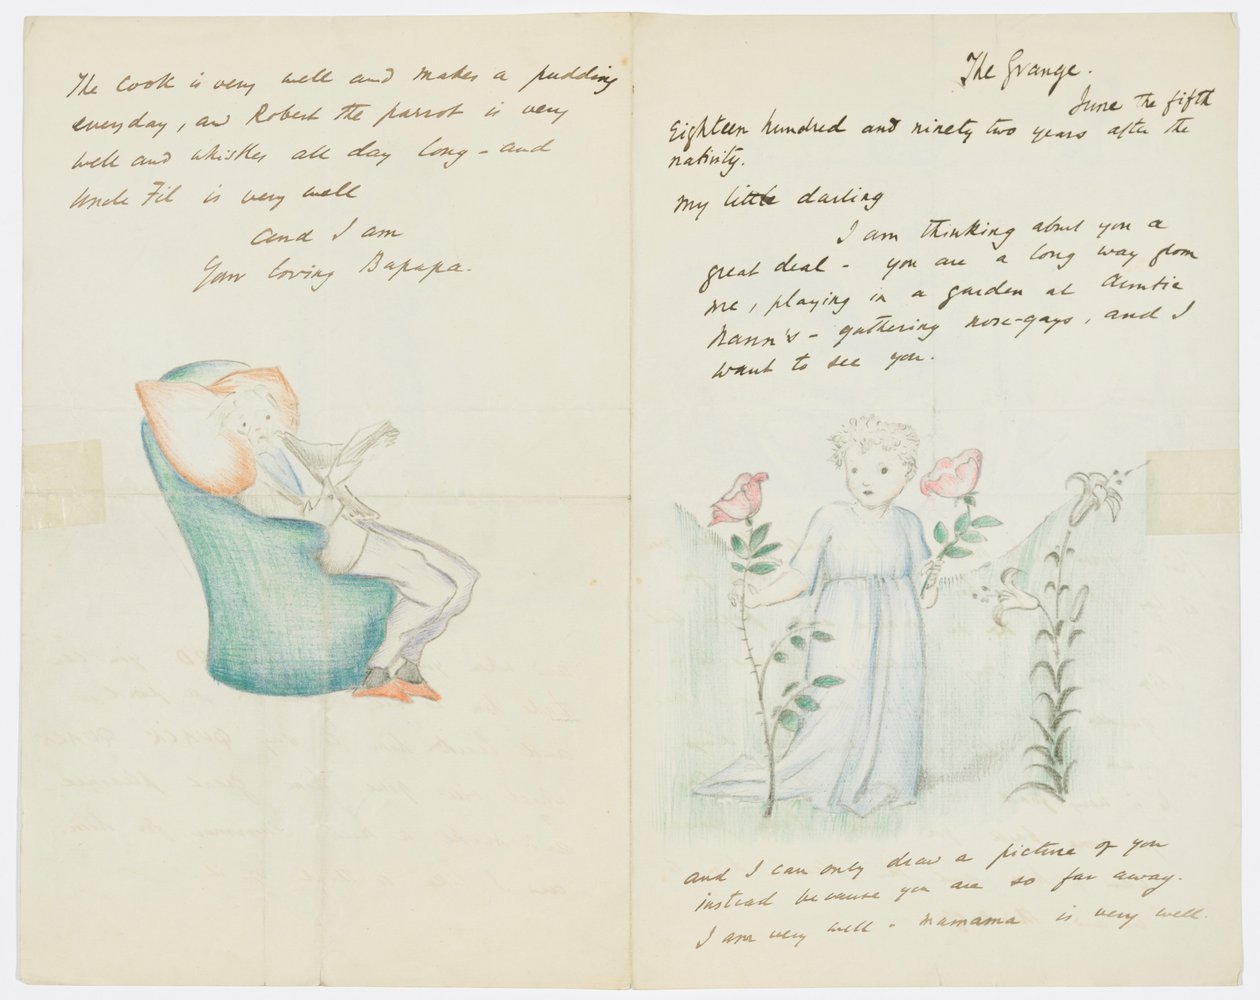 The Grange.
June the fifth
Eighteen hundred and ninety two years after the
nativity.
My little darling
I am thinking about you a
great deal - you are a long way from
me, playing in a garden at Auntie
Nann's - gathering nose-gays, and I
want to see you.
and I can only draw a picture of you
instead because you are so far away.
I am very well - Mamama is very well.
The cook is very well and makes a pudding
everyday, and Robert the parrot is very
well and whistles all day long - and
Uncle Fil is very well
and I am
Your loving Bapapa.